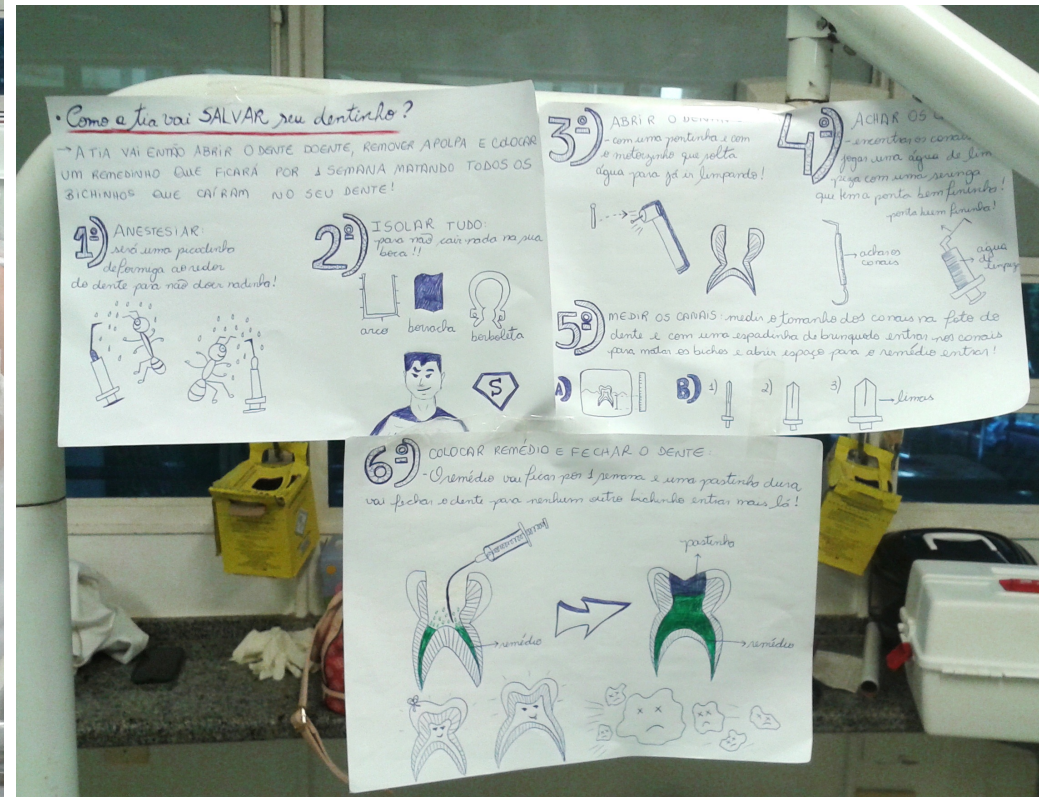 • Como a tia vai SALVAR seu dentinho?
→ A TIA VAI ENTÃO ABRIR O DENTE DOENTE, REMOVER A POLPA E COLOCAR
UM REMEDINHO QUE FICARÁ POR 1 SEMANA MATANDO TODOS OS
BICHINHOS QUE CAÍRAM NO SEU DENTE!
1º) ANESTESIAR:
será uma picadinha
de formiga ao redor
do dente para não doer nadinha!
2º) ISOLAR TUDO:
para não cair nada na sua
boca!!
arco
borracha
borboleta
S
3º) ABRIR O
- com uma pontinha e com
o motorzinho que solta
água para já ir limpando!
4º) ACHAR OS
- encontrar os canais
jogar uma água de lim
peza com uma seringa
que tem a ponta bem fininha!
ponta bem fininha!
achar os
canais
água
de
limpeza
5º) MEDIR OS CANAIS: medir o tamanho dos canais na foto do
dente e com uma espadinha de brinquedo entrar nos canais
para matar os bichos e abrir espaço para o remédio entrar!
A)
B) 1) 2) 3)
limas
6º) COLOCAR REMÉDIO E FECHAR O DENTE:
- O remédio vai ficar por 1 semana e uma pastinha dura
vai fechar o dente para nenhum outro bichinho entrar mais lá!
pastinha
remédio
remédio